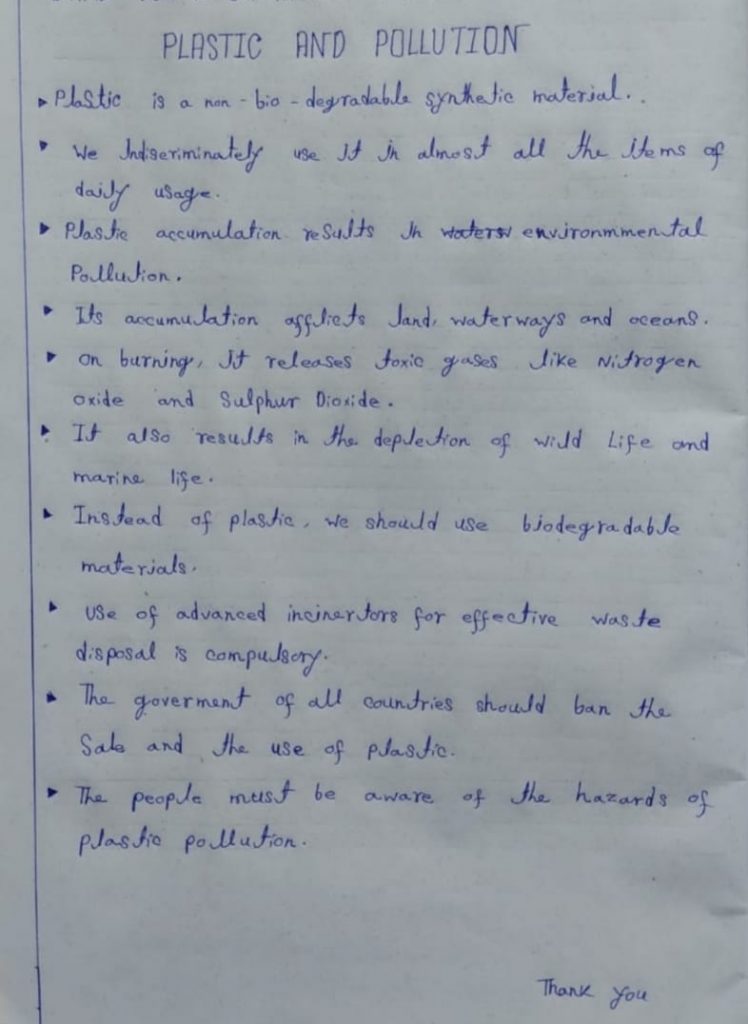 PLASTIC AND POLLUTION
▸ Plastic is a non-bio-degradable synthetic material..
▸ We Indiseriminately use it in almost all the items of
daily usage.
▸ Plastic accumulation results in waters environmmental
Pollution.
▸ Its accumulation afflicts land, waterways and oceans.
▸ on burning, it releases toxic gases like Nitrogen
oxide and Sulphur Dioxide.
▸ It also results in the depletion of wild Life and
marine life.
▸ Instead of plastic, we should use biodegradable
materials.
▸ Use of advanced incinertors for effective waste
disposal is compulsory.
▸ The goverment of all countries should ban the
Sale and the use of plastic.
▸ The people must be aware of the hazards of
plastic pollution.
Thank you